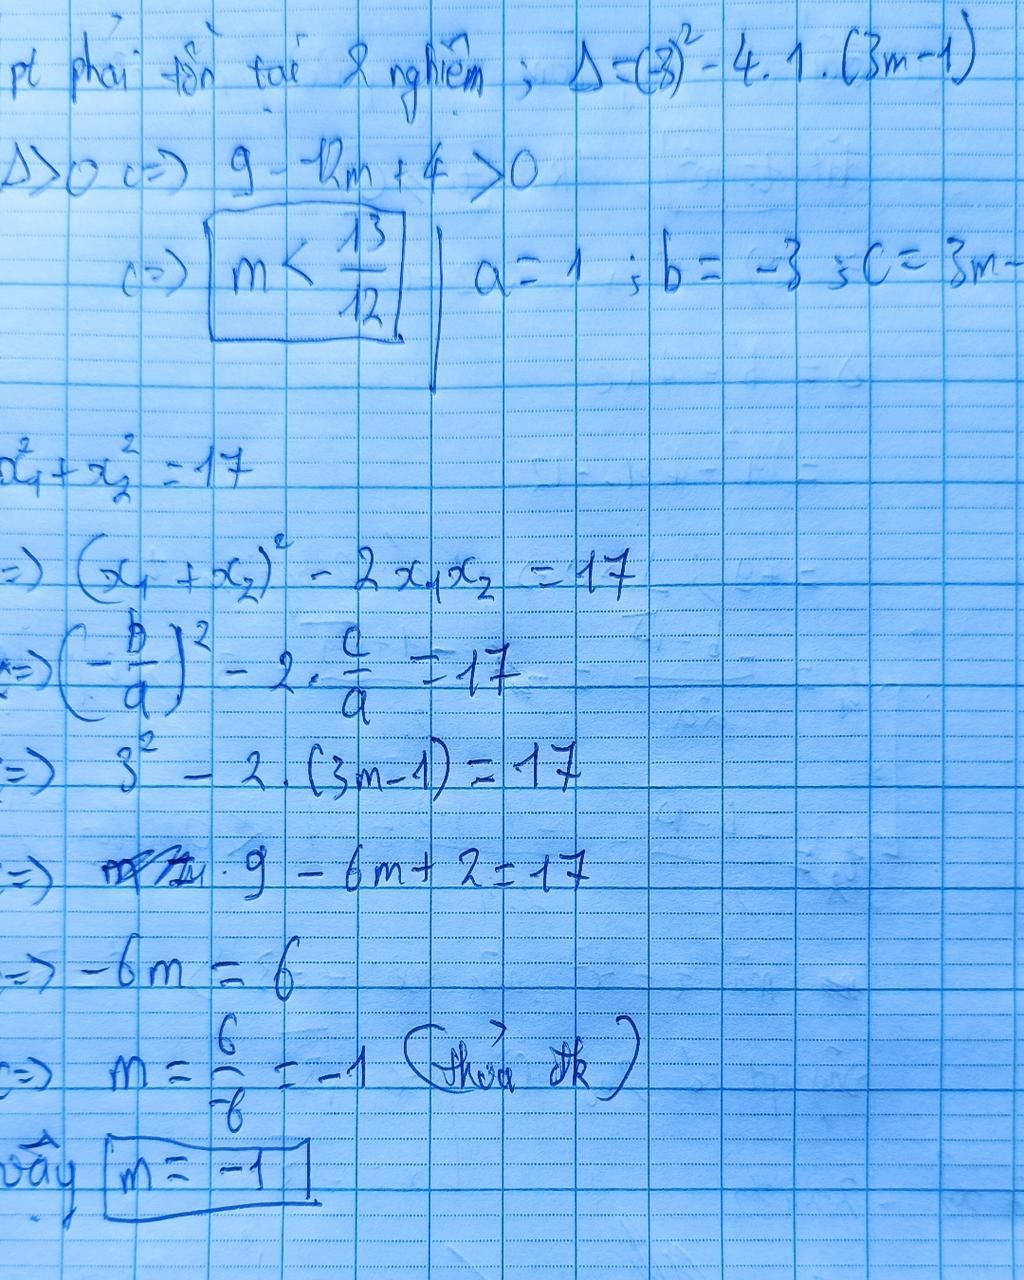 pt phải tồn tại 2 nghiệm ; Δ = (-3)² - 4.1.(3m-1)
Δ>0 <=> 9 - 12m + 4 > 0
<=> m < 13/12 | a = 1 ; b = -3 ; c = 3m-
x₁² + x₂² = 17
=> (x₁ + x₂)² - 2x₁x₂ = 17
<=> (-b/a)² - 2. c/a = 17
<=> 3² - 2.(3m-1) = 17
=> 9 - 6m + 2 = 17
=> -6m = 6
<=> m = 6/-6 = -1 (thỏa đk)
vậy m = -1